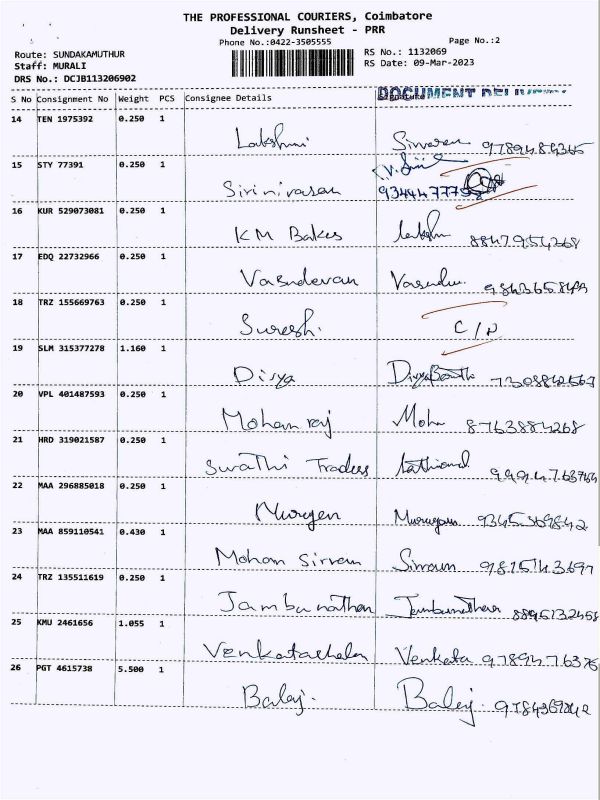 THE PROFESSIONAL COURIERS, Coimbatore
Delivery Runsheet - PRR
Phone No.:0422-3505555
Page No.:2
Route: SUNDAKAMUTHUR
RS No.: 1132069
Staff: MURALI
RS Date: 09-Mar-2023
DRS No.: DCJB113206902
DOCUMENT DELIVERY
S No Consignment No Weight PCS Consignee Details Signature
14 TEN 1975392 0.250 1
Lakshmi
15 STY 77391 0.250 1
Sirinivasan
16 KUR 529073081 0.250 1
KM Bakes 8847954268
17 EDQ 22732966 0.250 1
Vasudevan
18 TRZ 155669763 0.250 1
Suresh. C/N
19 SLM 315377278 1.160 1
Divya 7308842567
20 VPL 401487593 0.250 1
Mohan raj Mohn 8763884268
21 HRD 319021587 0.250 1
Swathi Traders
22 MAA 296885018 0.250 1
Murugen Murugan 9345369842
23 MAA 859110541 0.430 1
Mohan Sirram Sirram
24 TRZ 135511619 0.250 1
Jambunathan Jambunathan
25 KMU 2461656 1.055 1
Venkatachalan Venkata 978947 6376
26 PGT 4615738 5.500 1
Balaj. Balaj